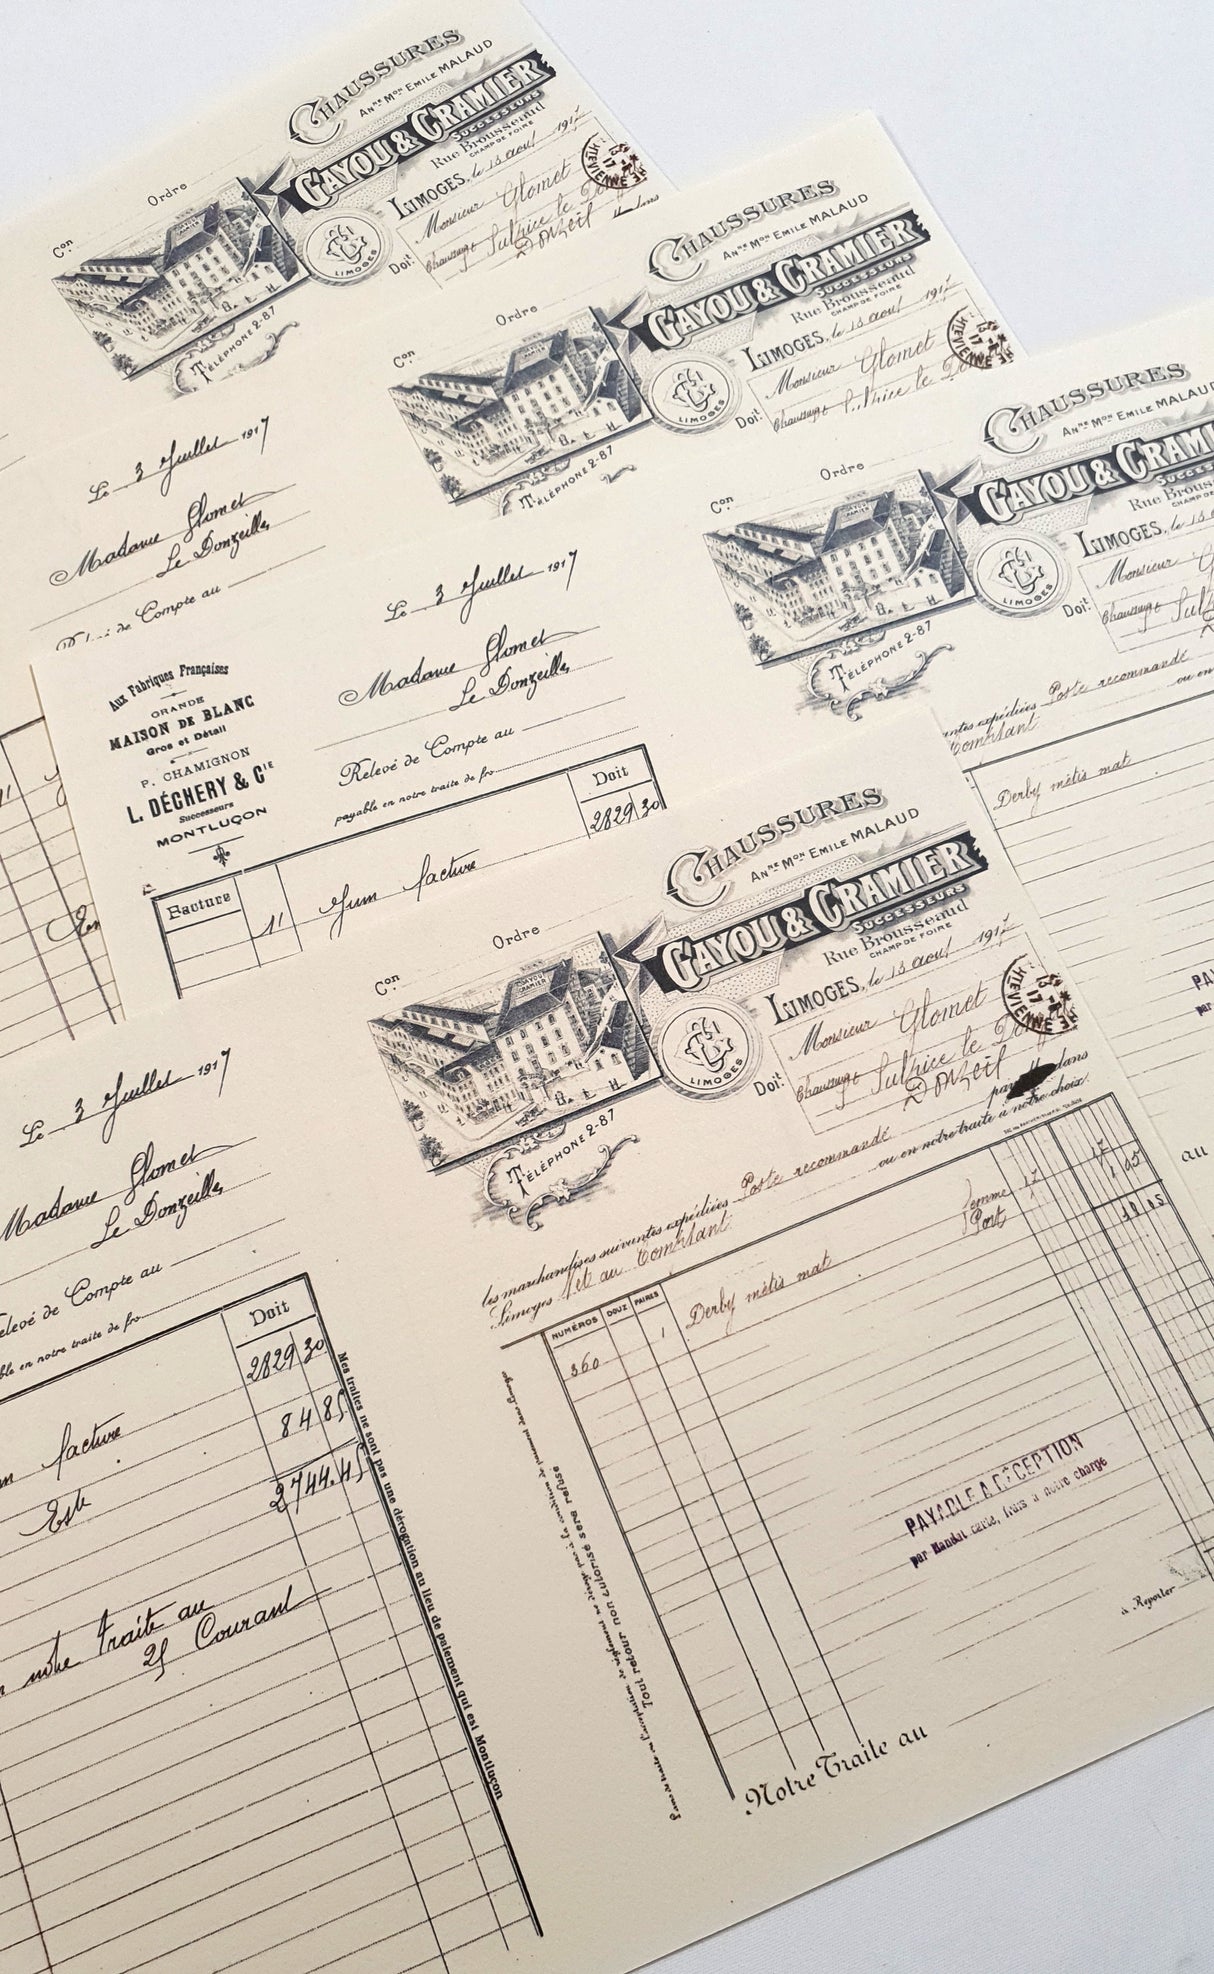 CHAUSSURES
ANNE MON EMILE MALAUD
GAYOU & CRAMIER
SUCCESSEURS
Rue Brousseaud
CHAMP DE FOIRE
Ordre
Con
LIMOGES, le 13 aout 1917
Monsieur Glomet
Doit
LIMOGES
TÉLÉPHONE 2-87
Le 3 Juillet 1917
Madame Glomet
Le Donzeille
de Compte au
CHAUSSURES
ANNE MON EMILE MALAUD
GAYOU & CRAMIER
SUCCESSEURS
Rue Brousseaud
CHAMP DE FOIRE
Ordre
Con
LIMOGES, le 13 aout 1917
Monsieur Glomet
Doit
LIMOGES
TÉLÉPHONE 2-87
CHAUSSURES
ANNE MON EMILE MALAUD
GAYOU & CRAM
Rue Brousse
CHAMP DE FO
Ordre
Con
LIMOGES, le
Monsieur
Doit
LIMOGES
TÉLÉPHONE 2-87
antes expédiées Poste recommandé
ou en
Comptant
Derby métis mat
PA
par
au
Aux Fabriques Françaises
GRANDE
MAISON DE BLANC
Gros et Détail
P. CHAMIGNON
L. DÉCHERY & CIE
Successeurs
MONTLUÇON
Le 3 Juillet 1917
Madame Glomet
Le Donzeille
Relevé de Compte au
payable en notre traite de fro
Doit
2829 30
Facture
11 Juin facture
Le 3 Juillet 1917
Madame Glomet
Le Donzeille
elevé de Compte au
ble en notre traite de fro
Doit
2829 30
facture
84 85
2744.45
notre traite au
25 Courant
Mes traites ne sont pas une dérogation au lieu de paiement qui est Montluçon
CHAUSSURES
ANNE MON EMILE MALAUD
GAYOU & CRAMIER
SUCCESSEURS
Rue Brousseaud
CHAMP DE FOIRE
Ordre
Con
GAYOU
CRAMIER
LIMOGES, le 13 aout 1917
HTE VIENNE
Monsieur Glomet
Doit
Sulpice le
Donzeil
LIMOGES
TÉLÉPHONE 2-87
dans
les marchandises suivantes expédiées Poste recommandé
ou en notre traite à notre choix.
Limoges Net au Comptant
NUMÉROS DOUZ PAIRES
360 1 Derby métis mat
femme 17
Port
PAYABLE A RÉCEPTION
par Mandat carte, frais à notre charge
à Reporter
Tout retour non autorisé sera refusé
Notre Traite au